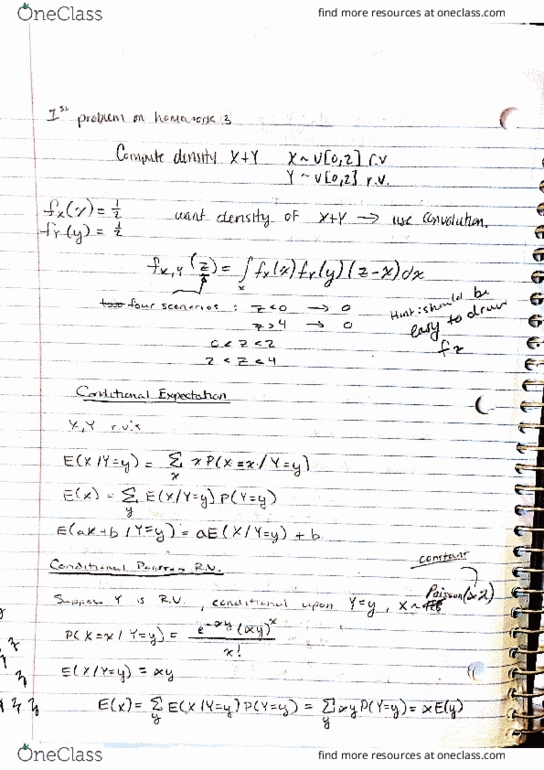 OneClass
find more resources at oneclass.com
1st problem on homework 3
Compute density X+Y X ~ U[0,2] r.v
Y ~ U[0,2] r.v.
fx(x) = 1/2
want density of X+Y → use convolution.
fY(y) = 1/2
fx,y(z) = ∫x fx(x) fy(y) (z-x) dx
four scenarios : z<0 → 0
z>4 → 0
0 < z < 2
2 < z < 4
Hint: should be
easy to draw
fz
Conditional Expectation
X, Y r.v.'s
E(X/Y=y) = Σx x P(X=x/Y=y)
E(x) = Σy E(X/Y=y) P(Y=y)
E(aX+b/Y=y) = aE(X/Y=y) + b
Conditional Poisson R.V.
constant
Suppose Y is R.V., conditional upon Y=y, X ~ Poisson
P(X=x/Y=y) = e^-αy (αy)^x / x!
E(X/Y=y) = αy
E(x) = Σy E(X/Y=y) P(Y=y) = Σy αy P(Y=y) = αE(y)
OneClass
find more resources at oneclass.com